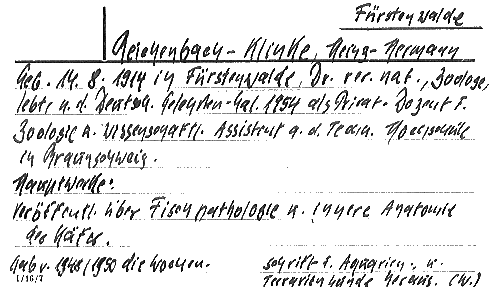 Fürstenwalde
Reichenbach-Klinke, Heinz-Hermann
Geb. 14. 8. 1914 in Fürstenwalde, Dr. rer. nat., Zoologe,
lebte n. d. Deutsch. Gelehrten-Kal. 1954 als Privat-Dozent f.
Zoologie u. wissenschaftl. Assistent a. d. Techn. Hochschule
in Braunschweig.
Hauptwerke:
Veröffentl. über Fischpathologie u. innere Anatomie
der Käfer.
Gab v. 1948/1950 die Wochen-
schrift f. Aquarien- u.
Terrarienkunde heraus. (W.)
1/16/7